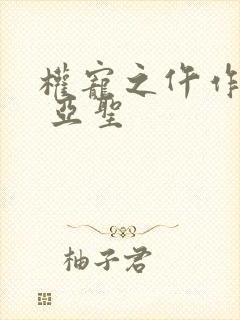 權寵之仵作
亞聖
柚子君